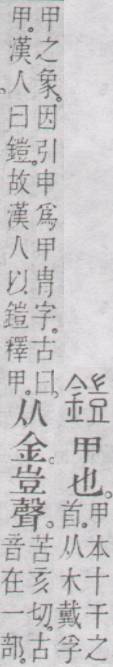 鎧
甲也。
甲本十干之
首。从木戴孚
甲之象。因引申爲甲冑字。古曰
甲。漢人曰鎧。故漢人以鎧釋甲。
从金。豈聲。
苦亥切。古
音在一部。